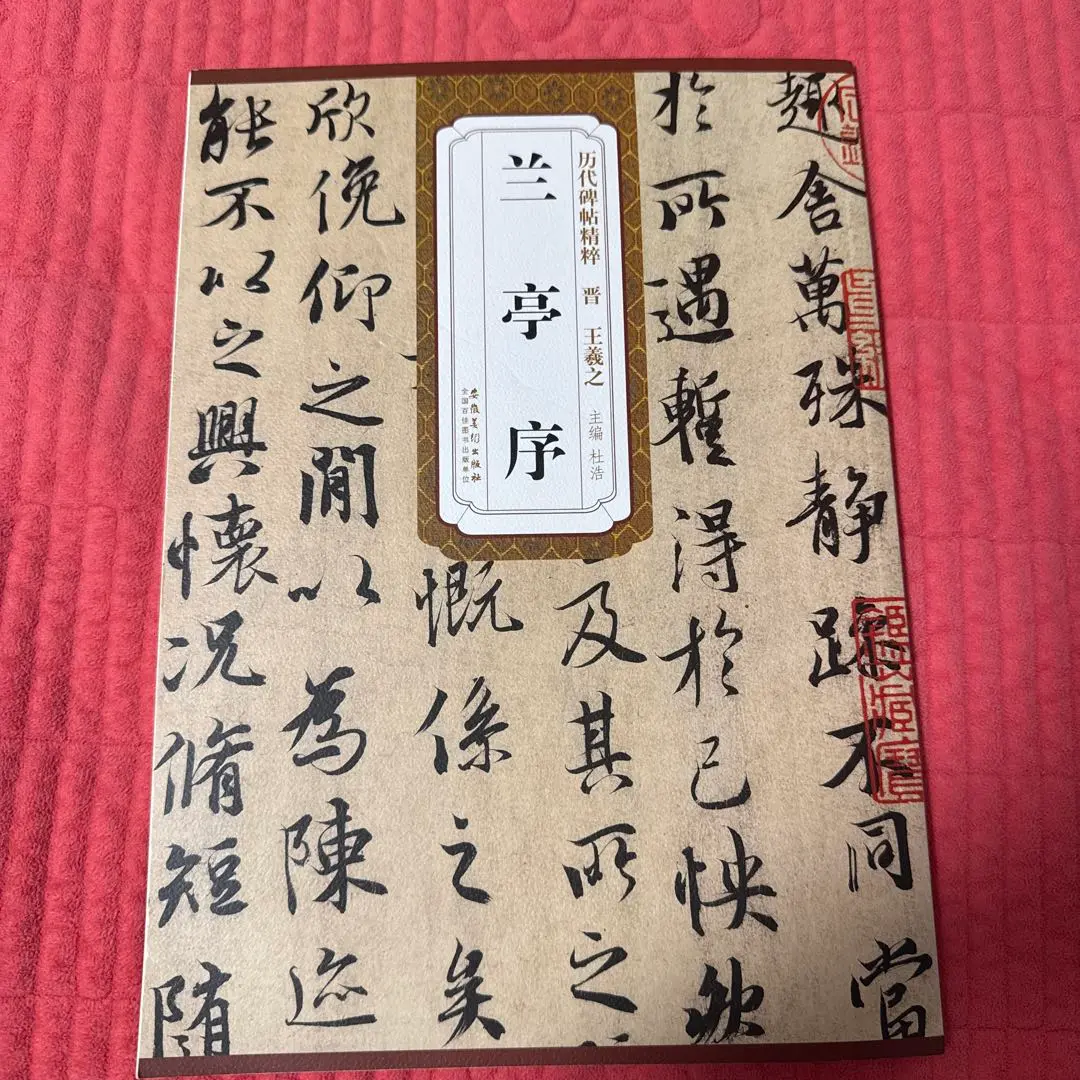 历代碑帖精粹 晋 王羲之
主编 杜浩
兰亭序
安徽美术出版社
全国百佳图书出版单位
趣舍萬殊静躁不同當
於所遇暫得於己怏然
及其所之
慨係之矣
欣俛仰之閒以為陳迹
能不以之興懷况脩短随